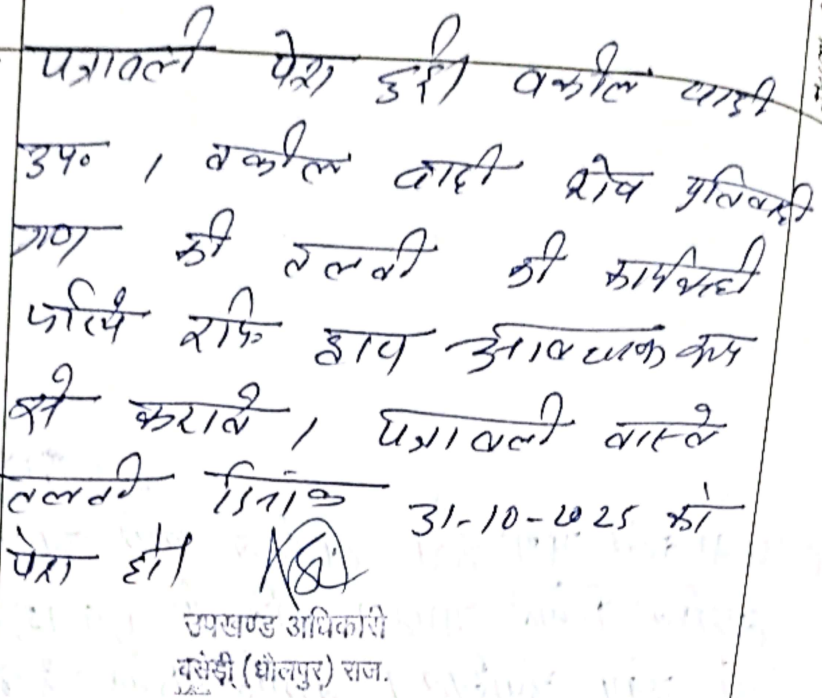 पत्रावली पेश हुई। वकील वादी
उप० । वकील वादी शेष प्रतिवादी
गण की तलवी की कार्यवाही
जरिये रजि० डाक आवश्यक रूप
से करावे । पत्रावली वास्ते
तलवी दिनांक 31-10-2025 को
पेश हो।
उपखण्ड अधिकारी
बसेड़ी (धौलपुर) राज.